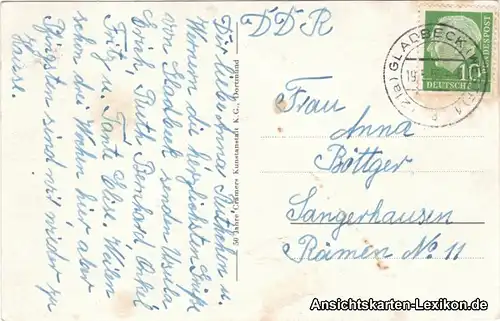 DDR
Dir liebe Anna, Mütterchen u.
Werner die herzlichsten Grüße
von Gladbeck senden Ursler
Erich, Ruth, Bernhard Onkel
Fritz u. Tante Elise. Weilen
schon drei Wochen hier aber
Pfingsten sind wir wieder zu
Hause.
50 Jahre Cramers Kunstanstalt K.G., Dortmund
GLADBECK
(21b)
19
10
DEUTSCHE BUNDESPOST
Frau
Anna
Böttger
Sangerhausen
Rämen No. 11
Ansichtskarten-Lexikon.de